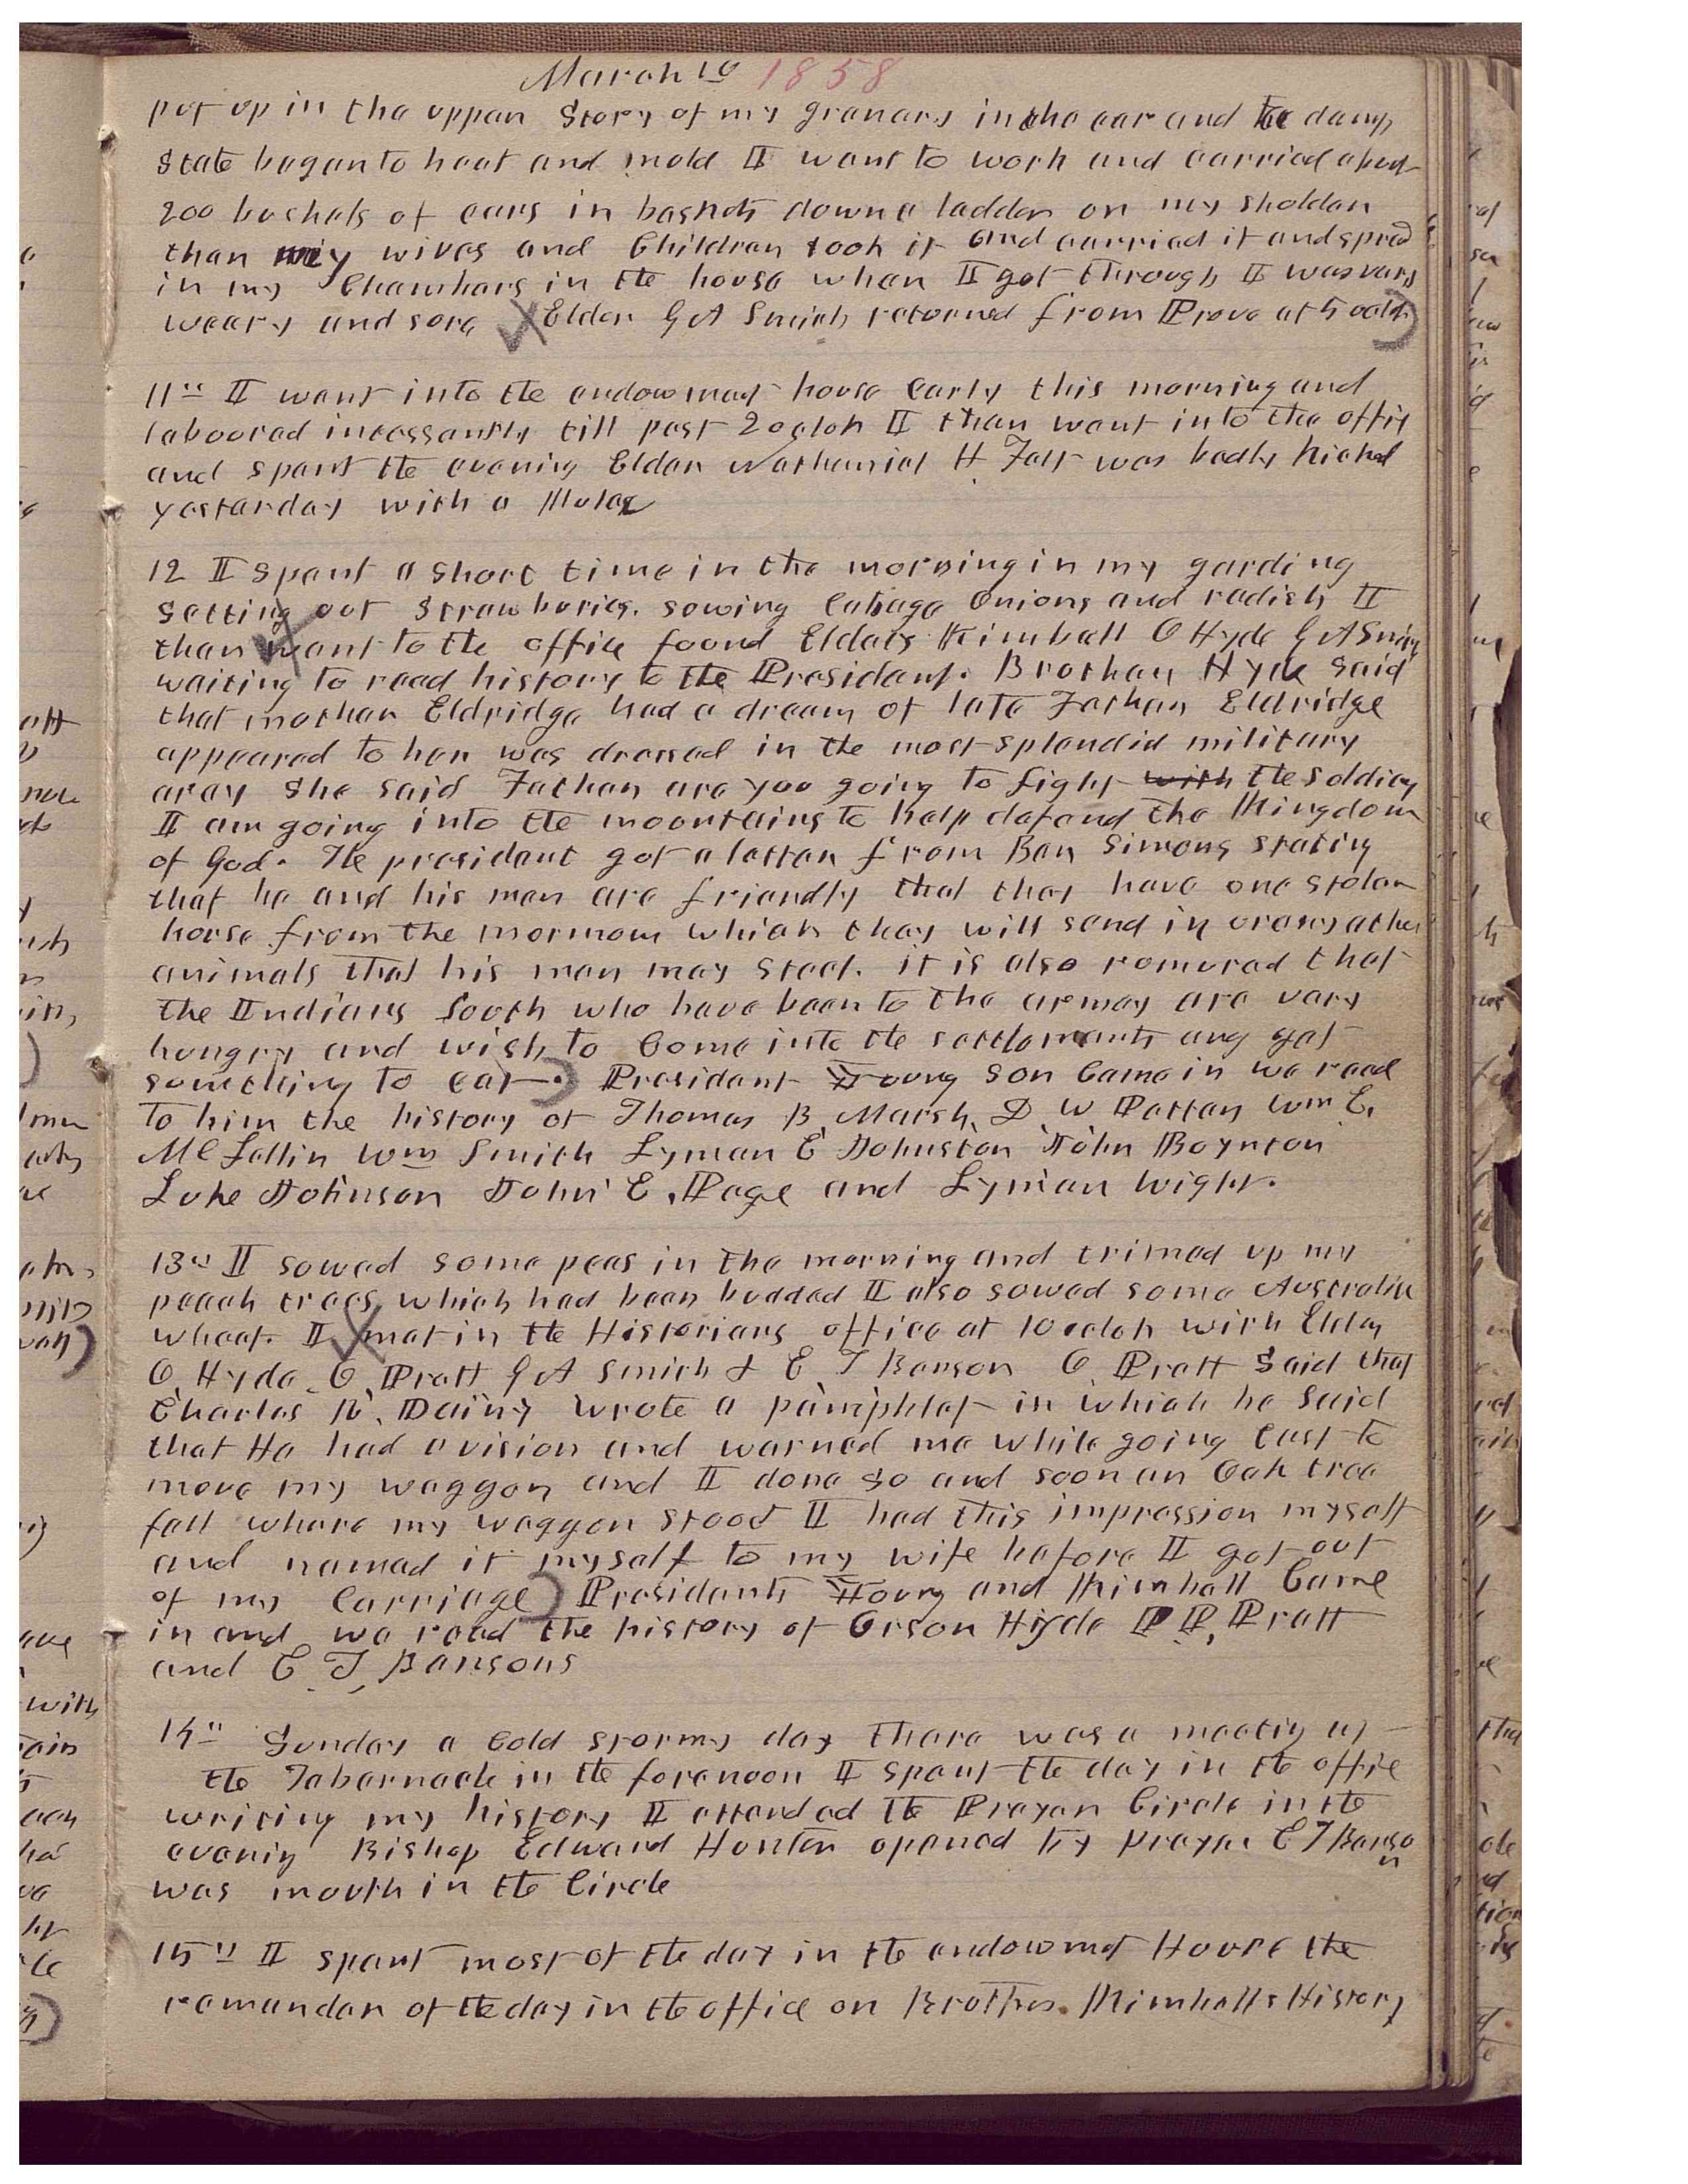 March 10 1858
put up in the upper Story of my granary in the ear and the damp
State began to heat and mold I went to work and carried about
200 bushels of ears in baskets down a ladder on my sholder
then my wives and Children took it and carried it and spred
in my Chambers in the house when I got through I was very
weary and sore Elder G A Smith returned from Provo at 5 oclok
11th I went into the endowment house early this morning and
laboored incessantly till past 2 oclok I then went into the offic
and spent the evening Elder Nathaniel H Felt was badly kicked
yesterday with a Mule
12 I spent a short time in the morning in my garding
setting out Strawburies. sowing Cabage Onions and radish I
then went to the office found Elders Kimball O Hyde G A Smith
waiting to read history to the President. Brother Hyde said
that mother Eldridge had a dream of late Father Eldridge
appeared to her was dressed in the most splendid military
aray She said Father are you going to fight with the soldiers
I am going into the mountains to help defend the Kingdom
of God. The president got a letter from Ben Simons stating
that he and his men are friendly that they have one stolen
horse from the mormons which they will send in or any other
animals that his men may steal. it is also romured that
the Indians South who have been to the armey are very
hungry and wish to Come into the settlements and get
something to eat. President Young soon Came in we read
to him the history of Thomas B. Marsh, D W Patten Wm E.
McLellin Wm Smith Lyman E Johnston John Boynton
Luke Johnson John E. Page and Lyman Wight.
13th I sowed some peas in the morning and trimed up my
peach trees which had been budded I also sowed some Australia
wheat. I met in the Historians office at 10 oclok with Elders
O. Hyde O. Pratt G A Smith & E T Benson O. Pratt Said that
Charles
wrote a pamphlet in which he said
that He had a vision and warned me while going East to
move my waggon and I done so and soon an Oak tree
fell where my waggon stood I had this impression myself
and named it myself to my wife before I got out
of my Carriage Presidents Young and Kimball Came
in and we read the history of Orson Hyde P. P. Pratt
and E T, Bensons
14th Sunday a Cold stormy day there was a meetig at
the Tabernacle in the forenoon I spent the day in the office
writing my history I attended the Prayer Circle in the
evenig Bishop Edward Hunter opened by prayer E T Benson
was mouth in the Circle
15th I spent most of the day in the endowmet House the
remander of the day in the office on Brother Kimballs History